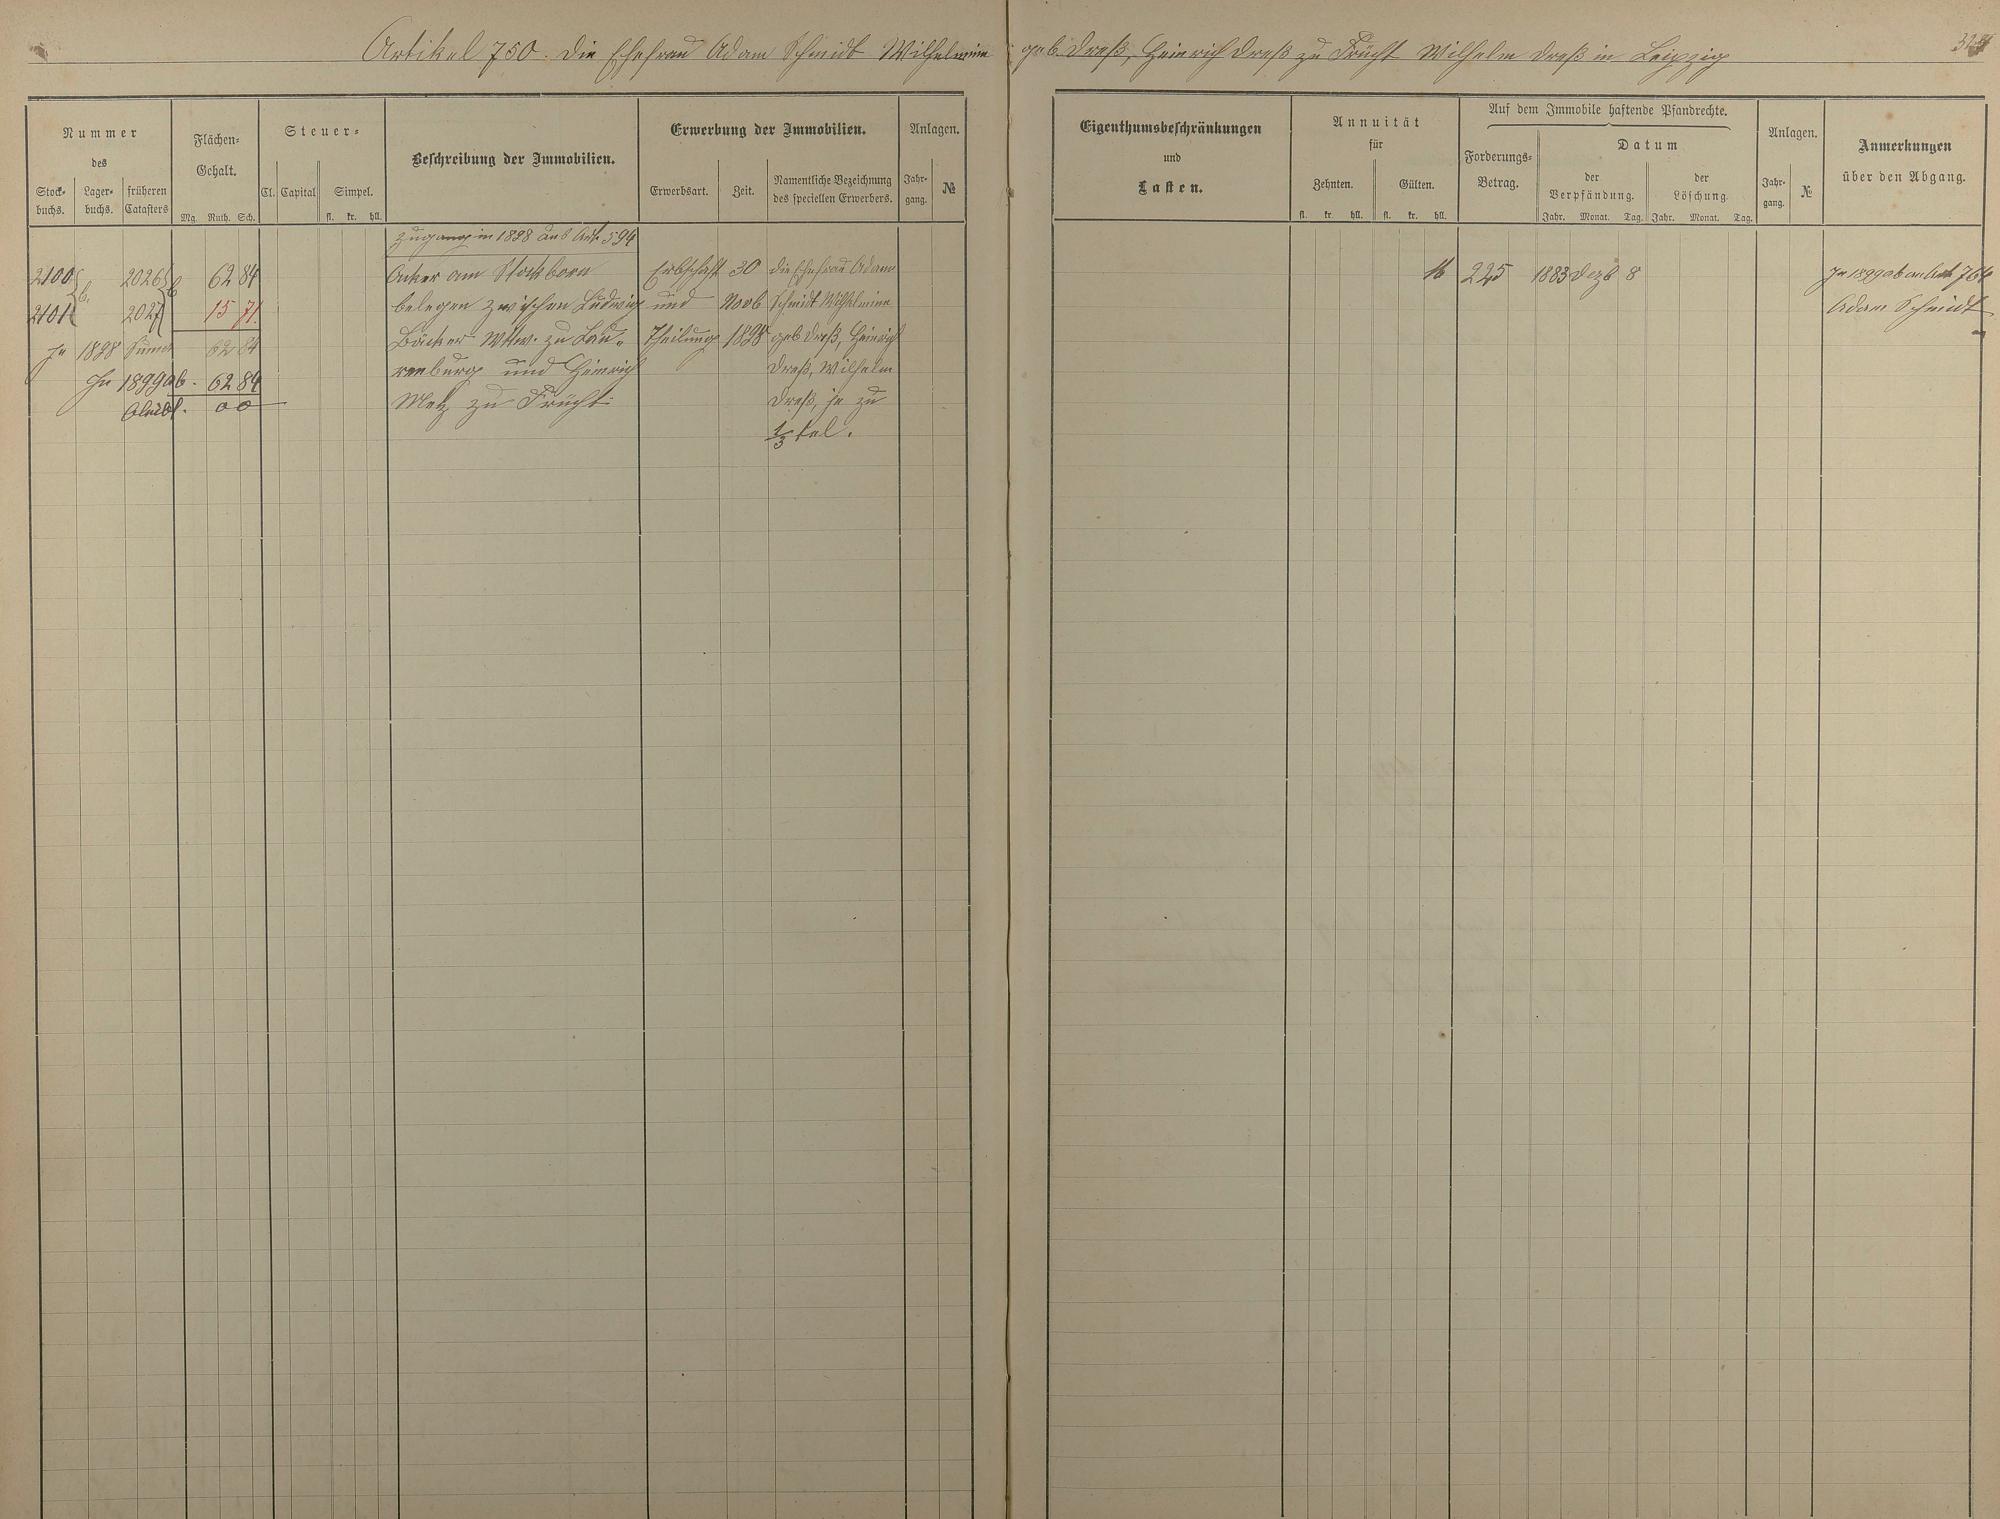 Artikel 750. die Ehefrau Adam Schmidt Wilhelmine geb. Dreß, Heinrich Dreß zu Frücht Wilhelm Dreß in Leipzig
Nummer
des
Stock-
buchs.
Lager-
buchs.
früheren
Catasters
Flächen-
Gehalt.
Mg. Ruth. Sch.
Steuer-
Cl. Capital Simpel.
fl. kr. hll.
Beschreibung der Immobilien.
Erwerbung der Immobilien.
Erwerbsart. Zeit.
Namentliche Bezeichnung
des speciellen Erwerbers.
Anlagen.
Jahr-
gang.
№
Eigenthumsbeschränkungen
und
Lasten.
Annuität
für
Zehnten. Gülten.
fl. kr. hll. fl. kr. hll.
Auf dem Immobile haftende Pfandrechte.
Forderungs-
Betrag.
Datum
der
Verpfändung.
Jahr. Monat. Tag.
der
Löschung.
Jahr. Monat. Tag.
Anlagen.
Jahr-
gang.
№
Anmerkungen
über den Abgang.
Zugang in 1898 aus Art. 594
2100 2026 62 84 Acker am Stockborn Erbschaft 30 die Ehefrau Adam 16 225 1883 Dezb 8 In 1899 ab an Art 766
2101 2027 15 71. belegen zwischen Ludwig und Novb Schmidt Wilhelmine Adam Schmidt
In 1898 Suma 62 84 Bäcker Wtw. zu Lau- Theilung 1898 geb Dreß, Heinrich
In 1899 ab. 62 84 renburg und Heinrich Dreß, Wilhelm
bleibt. 00 Metz zu Frücht. Dreß, je zu
1/3 tel.